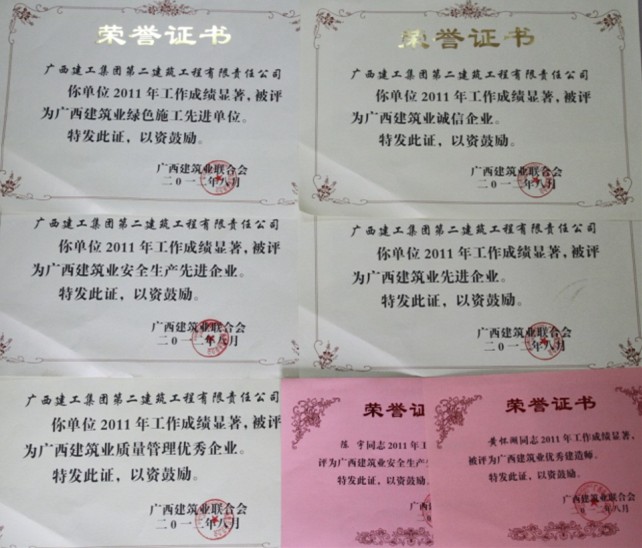 荣誉证书
广西建工集团第二建筑工程有限责任公司
你单位 2011 年工作成绩显著，被评
为广西建筑业绿色施工先进单位。
特发此证，以资鼓励。
广西建筑业联合会
二〇一二年八月
荣誉证书
广西建工集团第二建筑工程有限责任公司
你单位 2011 年工作成绩显著，被评
为广西建筑业诚信企业。
特发此证，以资鼓励。
广西建筑业联合会
二〇一二年八月
广西建工集团第二建筑工程有限责任公司
你单位 2011 年工作成绩显著，被评
为广西建筑业安全生产先进企业。
特发此证，以资鼓励。
广西建筑业联合会
二〇一二年八月
广西建工集团第二建筑工程有限责任公司
你单位 2011 年工作成绩显著，被评
为广西建筑业先进企业。
特发此证，以资鼓励。
广西建筑业联合会
二〇一二年八月
广西建工集团第二建筑工程有限责任公司
你单位 2011 年工作成绩显著，被评
为广西建筑业质量管理优秀企业。
特发此证，以资鼓励。
广西建筑业联合会
二〇一二年八月
荣誉证
同志 2011 年工
评为广西建筑业安全生产
特发此证，以资鼓励。
广西建
二〇
荣誉证书
黄怀湘同志 2011 年工作成绩显著，
被评为广西建筑业优秀建造师。
特发此证，以资鼓励。
广西建筑业联合会
二〇一二年八月